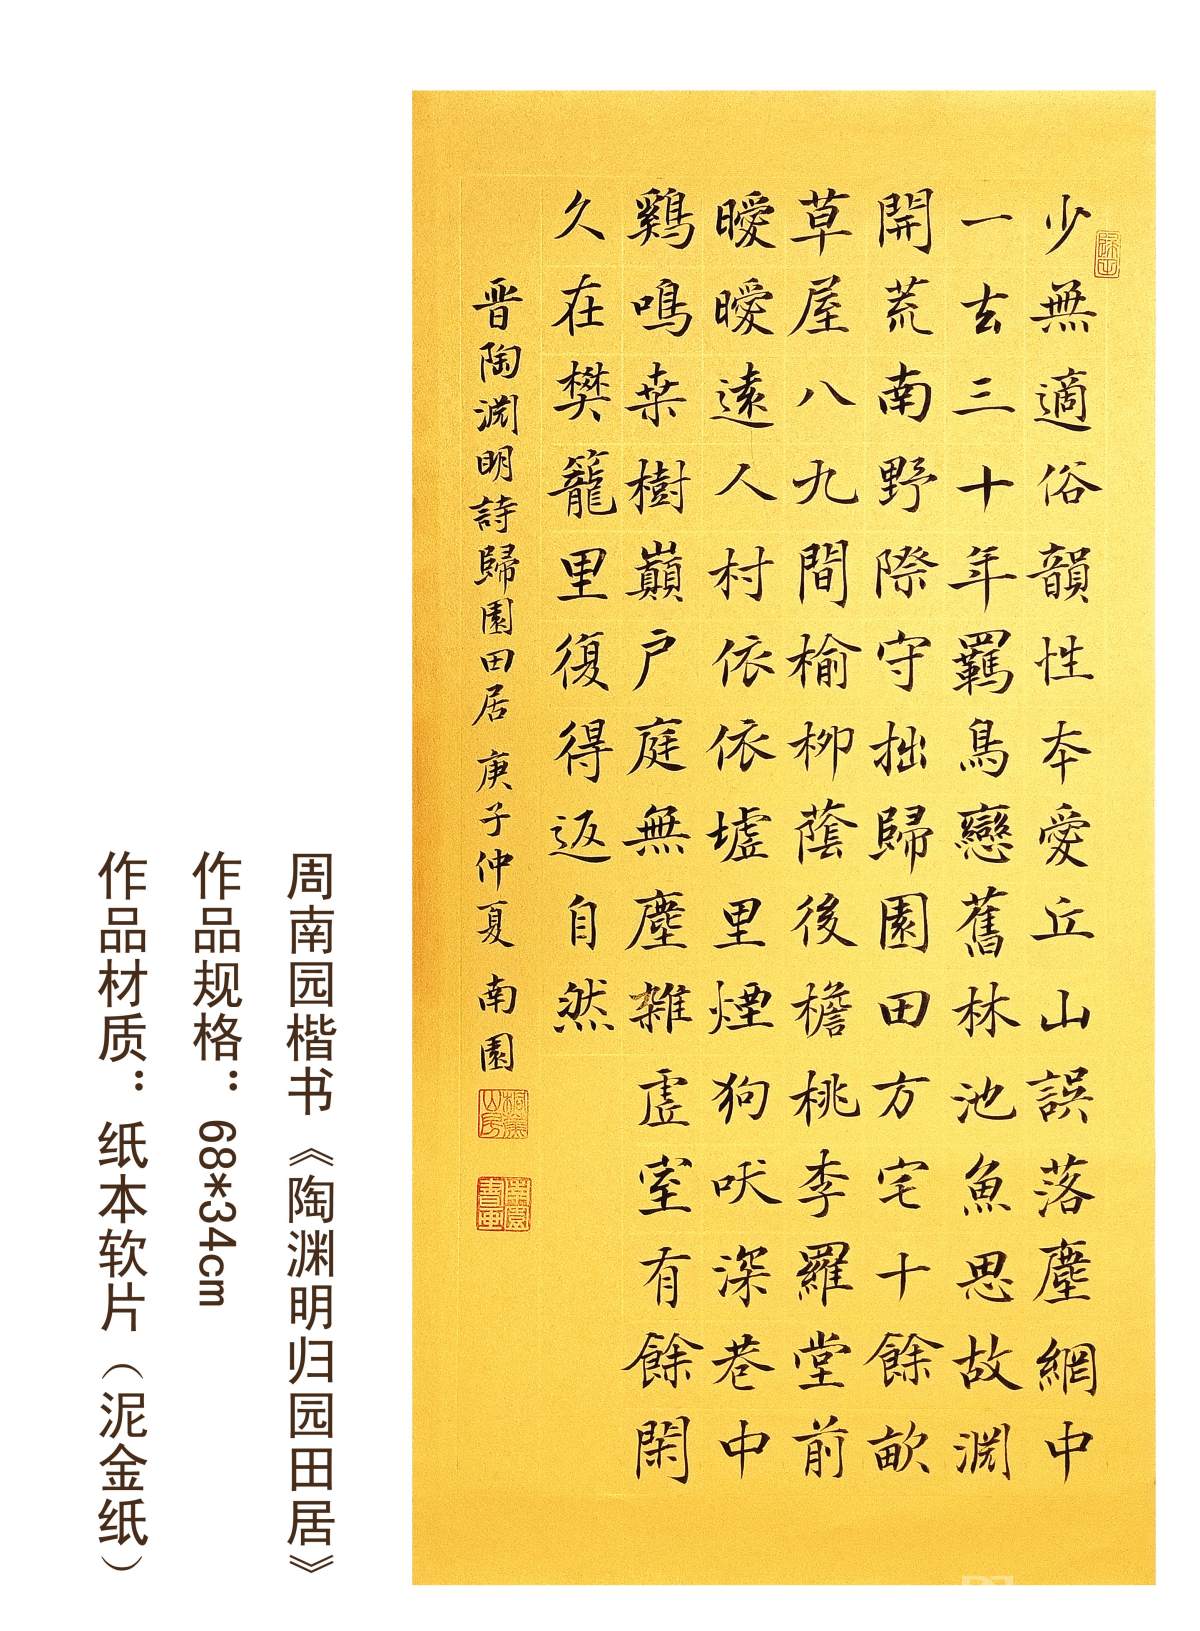 少無適俗韻性本愛丘山誤落塵網中
一去三十年羈鳥戀舊林池魚思故淵
開荒南野際守拙歸園田方宅十餘畝
草屋八九間榆柳蔭後檐桃李羅堂前
曖曖遠人村依依墟里煙狗吠深巷中
鷄鳴桒樹巔户庭無塵雜虛室有餘閑
久在樊籠里復得返自然
晋陶淵明詩歸園田居 庚子仲夏 南園
周南园楷书《陶渊明归园田居》
作品规格：68*34cm
作品材质：纸本软片（泥金纸）